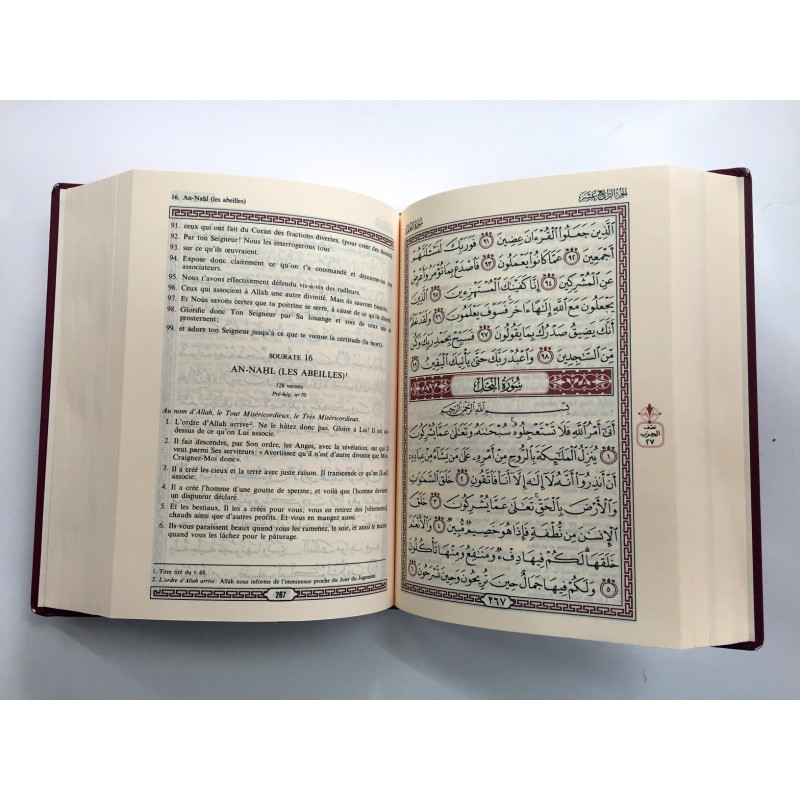 16. An-Naḥl (les abeilles)
91. ceux qui ont fait du Coran des fractions diverses, (pour créer des
92. Par ton Seigneur! Nous les interrogerons tous
93. sur ce qu'ils œuvraient.
94. Expose donc clairement ce qu'on t'a commandé et
associateurs.
95. Nous t'avons effectivement défendu vis-à-vis des railleurs.
96. Ceux qui associent à Allah une autre divinité. Mais ils sauront
97. Et Nous savons certes que ta poitrine se serre, à cause de ce qu'ils
98. Glorifie donc Ton Seigneur par Sa louange et sois de ceux qui se
prosternent;
99. et adore ton Seigneur jusqu'à ce que te vienne la certitude (la mort).
SOURATE 16
AN-NAḤL (LES ABEILLES)¹
128 versets
Pré-hég. n° 70
Au nom d'Allah, le Tout Miséricordieux, le Très Miséricordieux.
1. L'ordre d'Allah arrive². Ne le hâtez donc pas. Gloire à Lui! Il est au-
dessus de ce qu'on Lui associe.
2. Il fait descendre, par Son ordre, les Anges, avec la révélation, sur qui Il
veut parmi Ses serviteurs: «Avertissez qu'il n'est d'autre divinité que Moi.
Craignez-Moi donc».
3. Il a créé les cieux et la terre avec juste raison. Il transcende ce qu'on [Lui]
associe.
4. Il a créé l'homme d'une goutte de sperme; et voilà que l'homme devient
un disputeur déclaré.
5. Et les bestiaux, Il les a créés pour vous; vous en retirez des [vêtements]
chauds ainsi que d'autres profits. Et vous en mangez aussi.
6. Ils vous paraissent beaux quand vous les ramenez, le soir, et aussi le matin
quand vous les lâchez pour le pâturage.
1. Titre tiré du v.68.
2. L'ordre d'Allah arrive: Allah nous informe de l'imminence proche du Jour du Jugement.
267
الجزء الرابع عشر
ٱلَّذِينَ جَعَلُوا۟ ٱلْقُرْءَانَ عِضِينَ ٩١ فَوَرَبِّكَ لَنَسْـَٔلَنَّهُمْ
أَجْمَعِينَ ٩٢ عَمَّا كَانُوا۟ يَعْمَلُونَ ٩٣ فَٱصْدَعْ بِمَا تُؤْمَرُ وَأَعْرِضْ
عَنِ ٱلْمُشْرِكِينَ ٩٤ إِنَّا كَفَيْنَـٰكَ ٱلْمُسْتَهْزِءِينَ ٩٥ ٱلَّذِينَ
يَجْعَلُونَ مَعَ ٱللَّهِ إِلَـٰهًا ءَاخَرَ فَسَوْفَ يَعْلَمُونَ ٩٦ وَلَقَدْ نَعْلَمُ
أَنَّكَ يَضِيقُ صَدْرُكَ بِمَا يَقُولُونَ ٩٧ فَسَبِّحْ بِحَمْدِ رَبِّكَ وَكُن
مِّنَ ٱلسَّـٰجِدِينَ ٩٨ وَٱعْبُدْ رَبَّكَ حَتَّىٰ يَأْتِيَكَ ٱلْيَقِينُ ٩٩
سُورَةُ النَّحْلِ
بِسْمِ ٱللَّهِ ٱلرَّحْمَـٰنِ ٱلرَّحِيمِ
أَتَىٰٓ أَمْرُ ٱللَّهِ فَلَا تَسْتَعْجِلُوهُ سُبْحَـٰنَهُۥ وَتَعَـٰلَىٰ عَمَّا يُشْرِكُونَ
١ يُنَزِّلُ ٱلْمَلَـٰٓئِكَةَ بِٱلرُّوحِ مِنْ أَمْرِهِۦ عَلَىٰ مَن يَشَآءُ مِنْ عِبَادِهِۦٓ
أَنْ أَنذِرُوٓا۟ أَنَّهُۥ لَآ إِلَـٰهَ إِلَّآ أَنَا۠ فَٱتَّقُونِ ٢ خَلَقَ ٱلسَّمَـٰوَٰتِ
وَٱلْأَرْضَ بِٱلْحَقِّ تَعَـٰلَىٰ عَمَّا يُشْرِكُونَ ٣ خَلَقَ
ٱلْإِنسَـٰنَ مِن نُّطْفَةٍ فَإِذَا هُوَ خَصِيمٌ مُّبِينٌ ٤ وَٱلْأَنْعَـٰمَ
خَلَقَهَا لَكُمْ فِيهَا دِفْءٌ وَمَنَـٰفِعُ وَمِنْهَا تَأْكُلُونَ
٥ وَلَكُمْ فِيهَا جَمَالٌ حِينَ تُرِيحُونَ وَحِينَ تَسْرَحُونَ ٦
الحزب
٢٧
٢٦٧